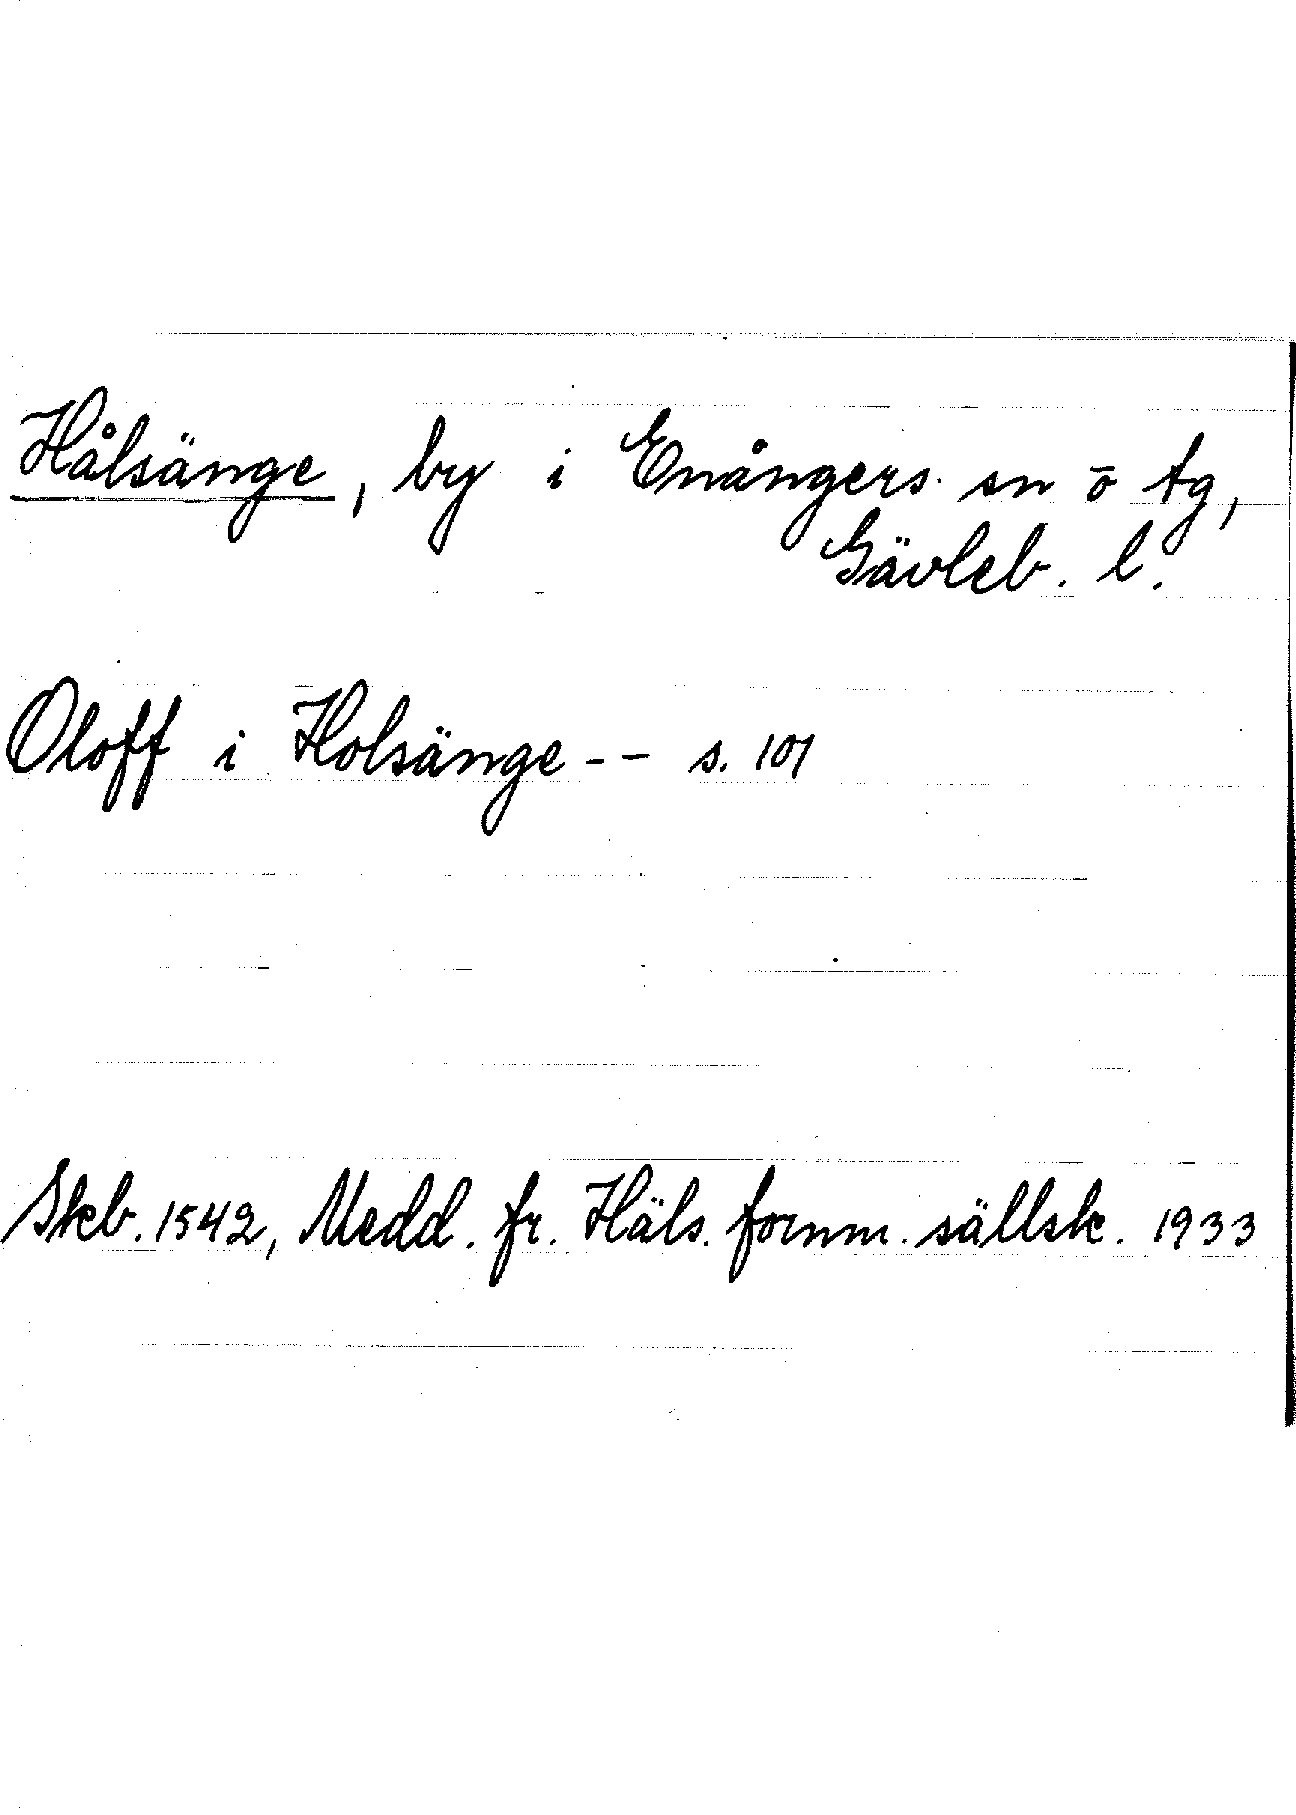 Hålsänge, by i Enångers sn ō tg,
Gävleb. l.
Oloff i Holsänge -- s. 101
Skb. 1542, Medd. fr. Häls. fornm. sällsk. 1933